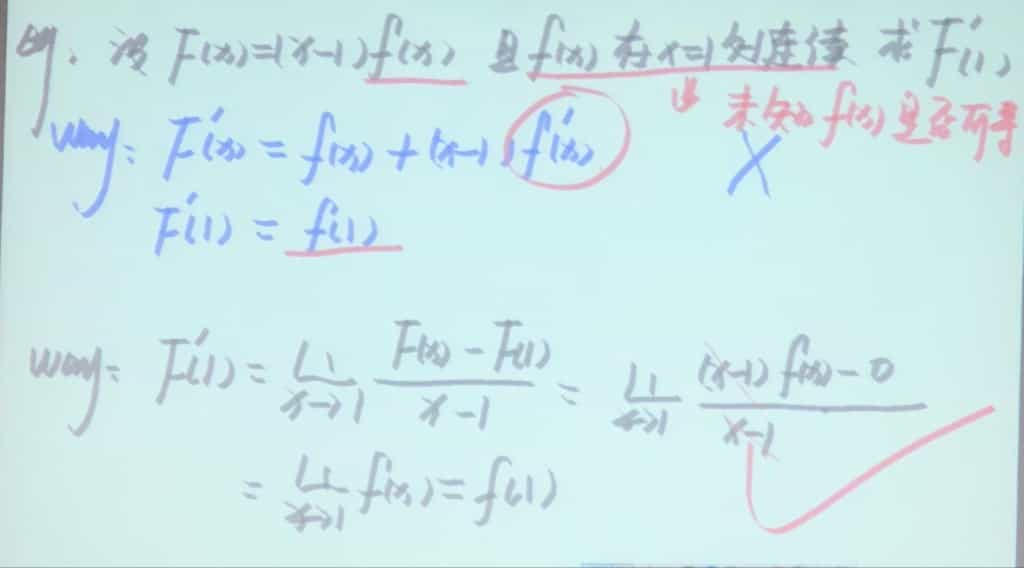 例. 设 F(x)=(x-1)f(x) 且f(x)在x=1处连续 求F'(1)
⇓ 未知f(x)是否可导
way: F'(x) = f(x) + (x-1)f'(x) ×
F'(1) = f(1)
way: F'(1) = lim x→1 F(x)-F(1) / x-1 = lim x→1 (x-1)f(x)-0 / x-1
= lim x→1 f(x) = f(1)